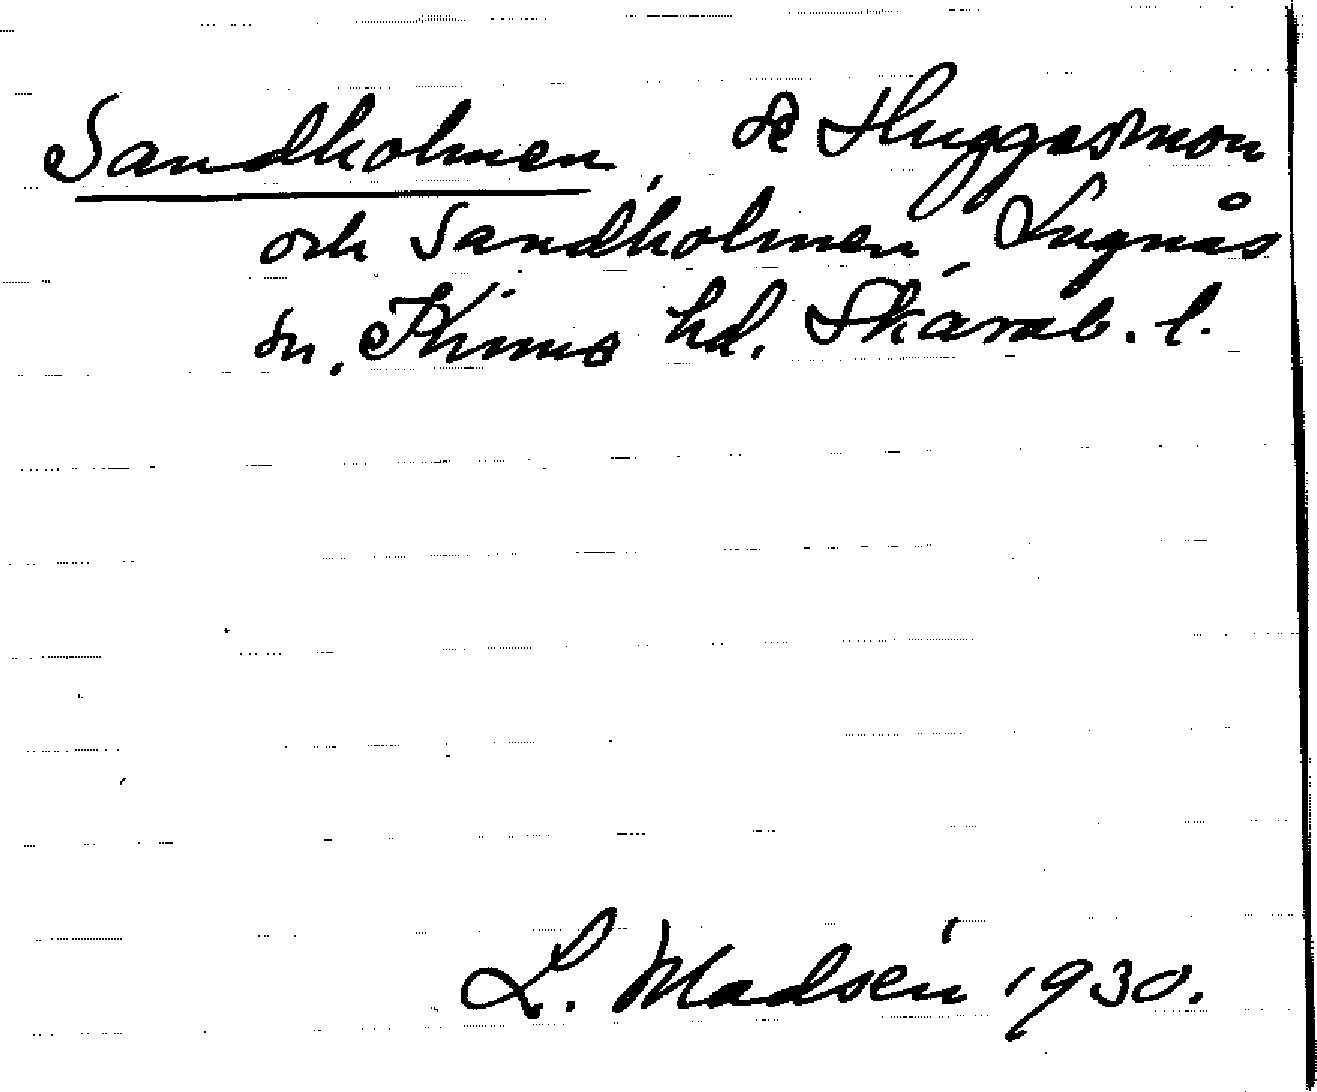 Sandholmen, se Huggesmon
och Sandholmen, Lugnås
sn, Kinne hd, Skarab. l.
L. Madsén 1930.